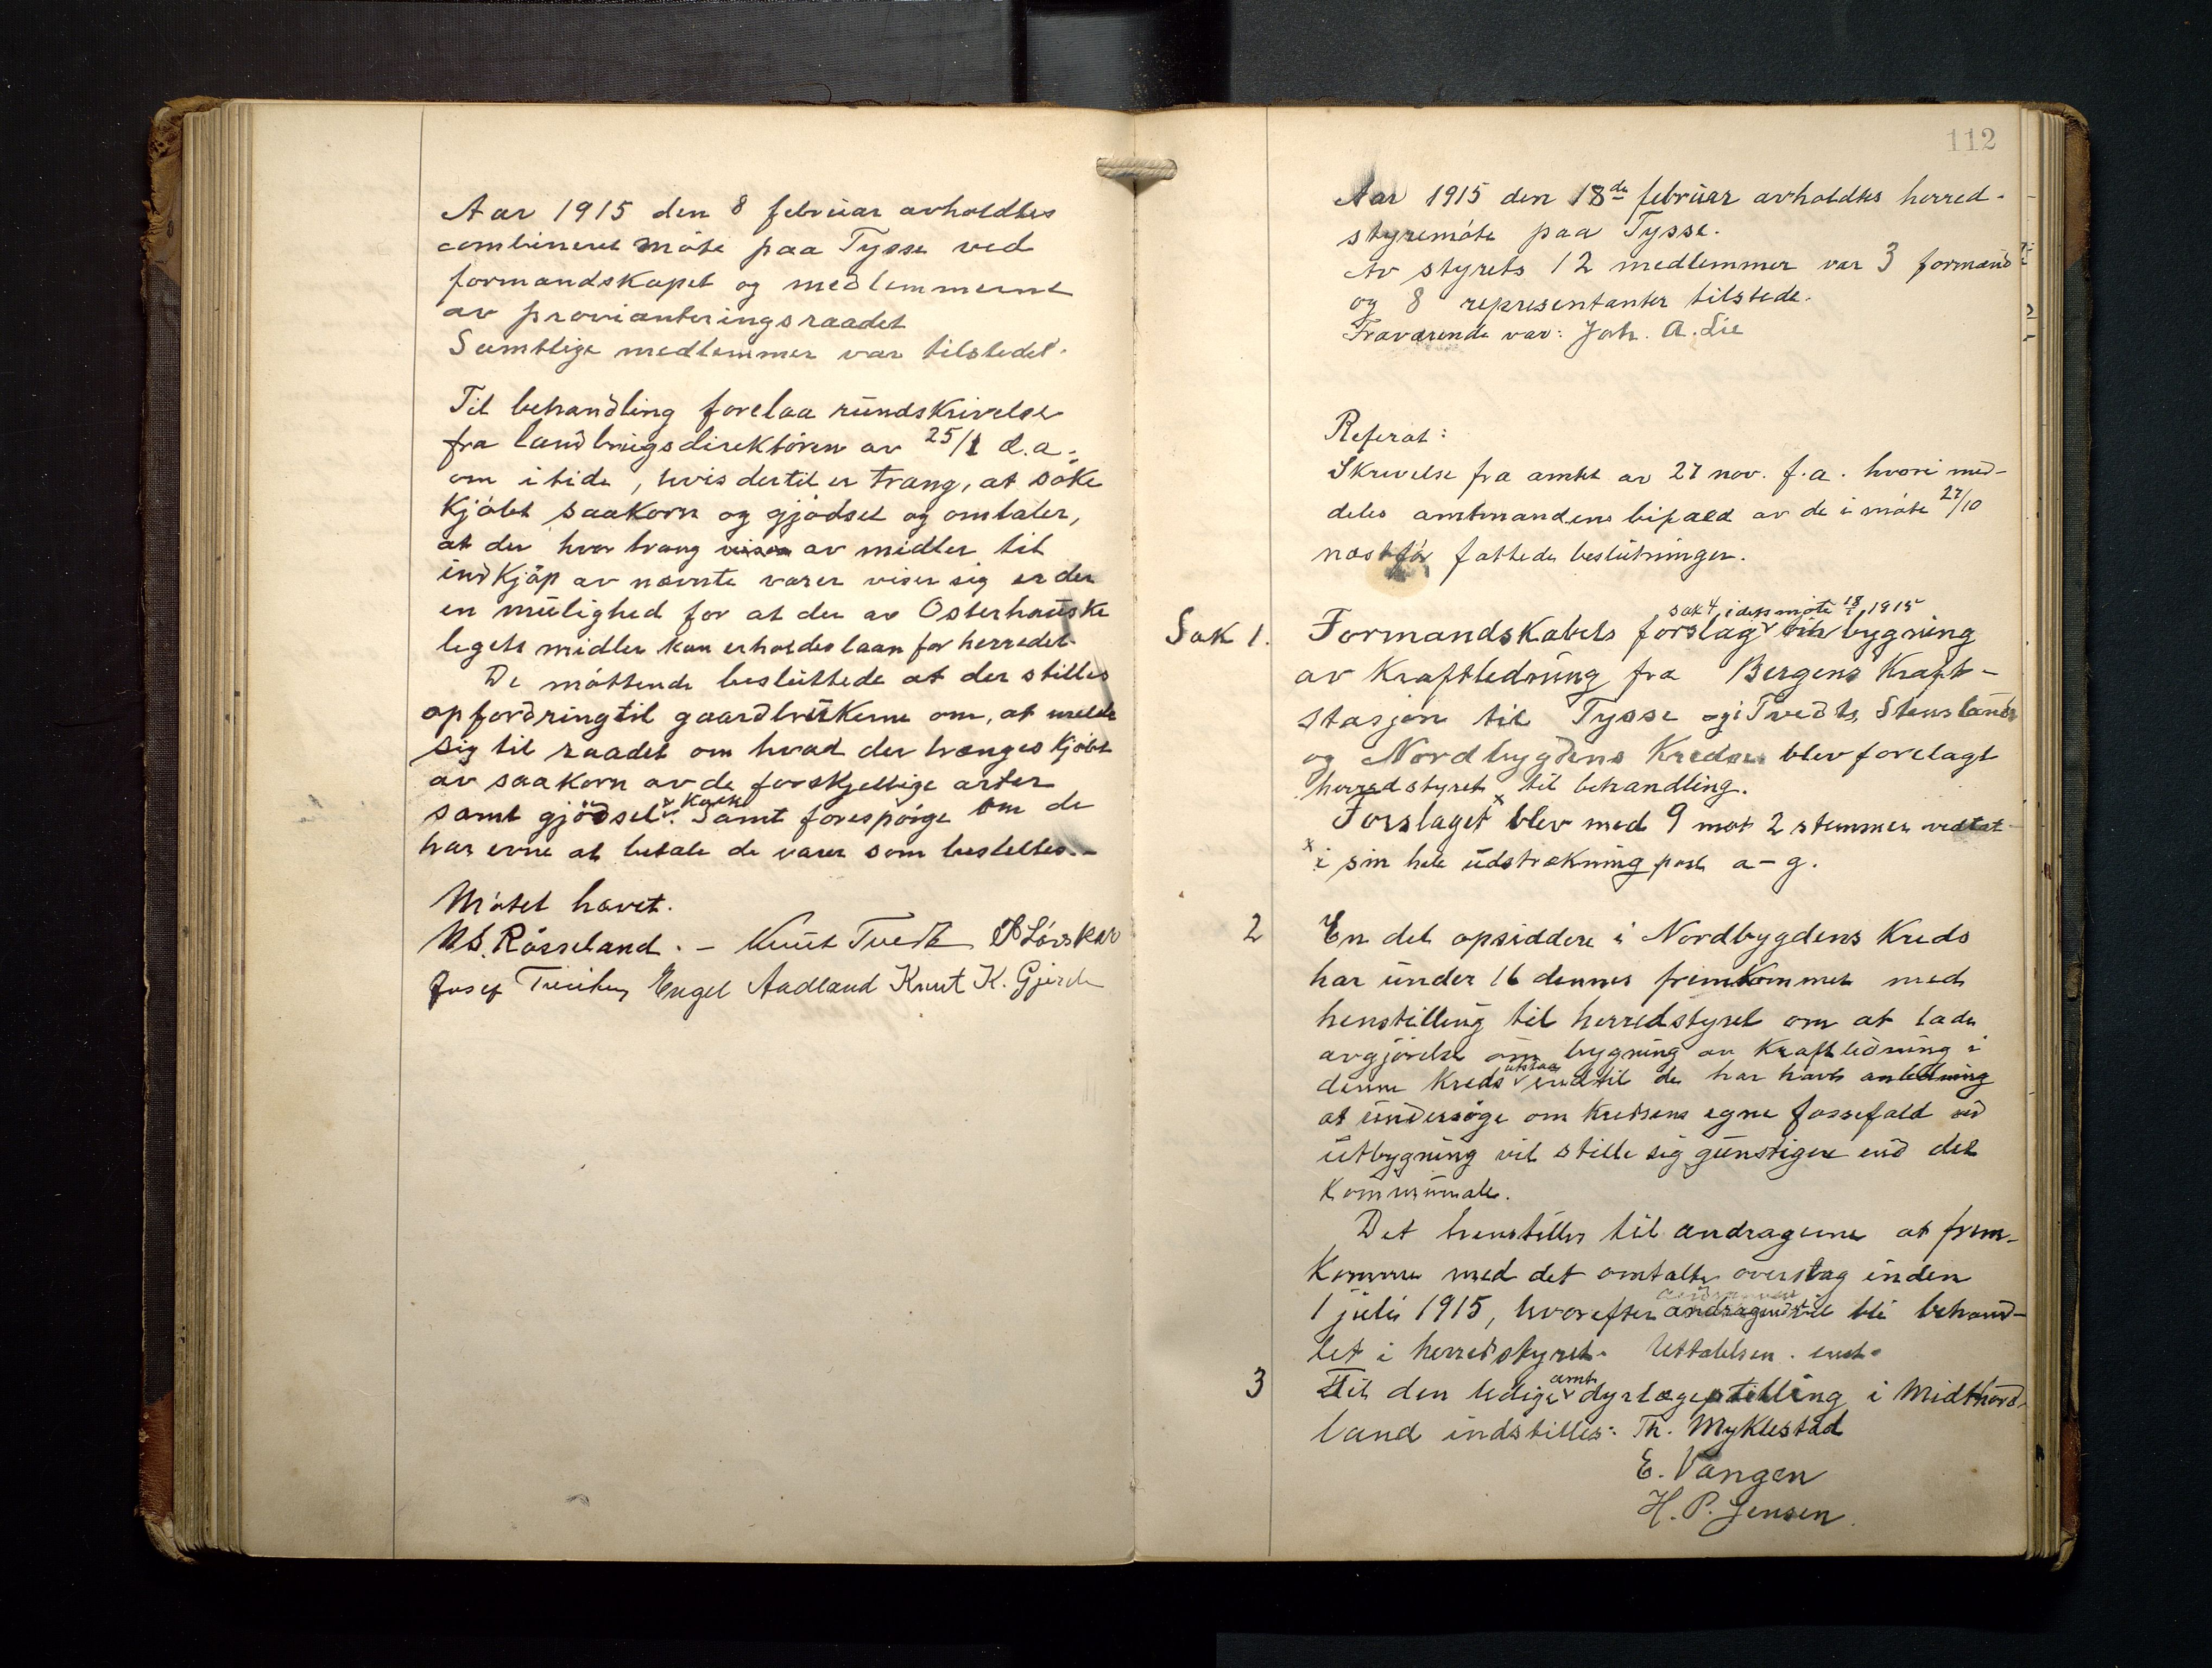 Aar 1915 den 8 februar avholdtes
combineret møte paa Tysse ved
formandskapet og medlemmerne
av provianteringsraadet
Samtlige medlemmer var tilstedet.
Til behandling forelaa rundskrivelse
fra landbrugsdirektøren av 25/1 d.a.
om itide, hvis dertil er trang, at søke
kjøbt saakorn og gjødsel og omtaler,
at der hvor trang av midler til
indkjøp av nævnte varer viser sig er der
en mulighed for at der av Osterhauske
legets midler kan erholdes laan for herredet.
De møttende besluttede at der stilles
opfordring til gaardbrukerne om, at melde
sig til raadet om hvad der trænges kjøbt
av saakorn av de forskjellige arter
samt gjødsel. Samt forespørge om de
har evne at betale de varer som bestelles.-
Møtet hævet.
N.S. Røsseland. - Knut Tvedt Løvskar
Josef Engel Aadland Knut K. Gjerde
112
Aar 1915 den 18de februar avholdtes herred-
styremøte paa Tysse.
Av styrets 12 medlemmer var 3 formænd
og 8 representanter tilstede.
Fraværende var: Joh. A. Lie
Referat:
Skrivelse fra amtet av 27 nov. f.a. hvori med-
deles amtmandens bifald av de i møte 27/10
næstfør fattede beslutninger.
sak 4 i dets møte 18/1 1915
Sak 1. Formandskabets forslag om bygning
av kraftledning fra Bergens Kraft-
stasjon til Tysse og i Tvedts, Stenslands
og Nordbygdens Kredse blev forelagt
herredstyret til behandling.
Forslaget x blev med 9 mot 2 stemmer vedtat
x i sin hele udstrækning post a-g.
2 En del opsiddere i Nordbygdens Kreds
har under 16 dennes fremkommet med
henstilling til herredstyret om at lade
avgjørelse om bygning av Kraftledning i
utstaa
denne Kreds indtil de har havt anledning
at undersøge om Kredsens egne fossefald ved
utbygning vil stille sig gunstigere end det
Kommunale.
Det henstilles til andragerne at frem-
Komme med det omtalte overslag inden
1 juli 1915, hvorefter andragendet vil bli behand-
let i herredstyret. Uttalelsen. enst.
amts
3 Til den ledige dyrlægestilling i Midthord-
land indstilles: Th. Myklestad
E. Vangen
H. P. Jensen.